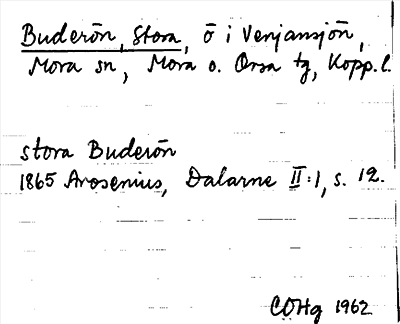 Buderön, Stora, ö i Venjansjön,
Mora sn, Mora o. Orsa tg, Kopp. l.
stora Buderön
1865 Arosenius, Dalarne II:1, s. 12.
COHg 1962